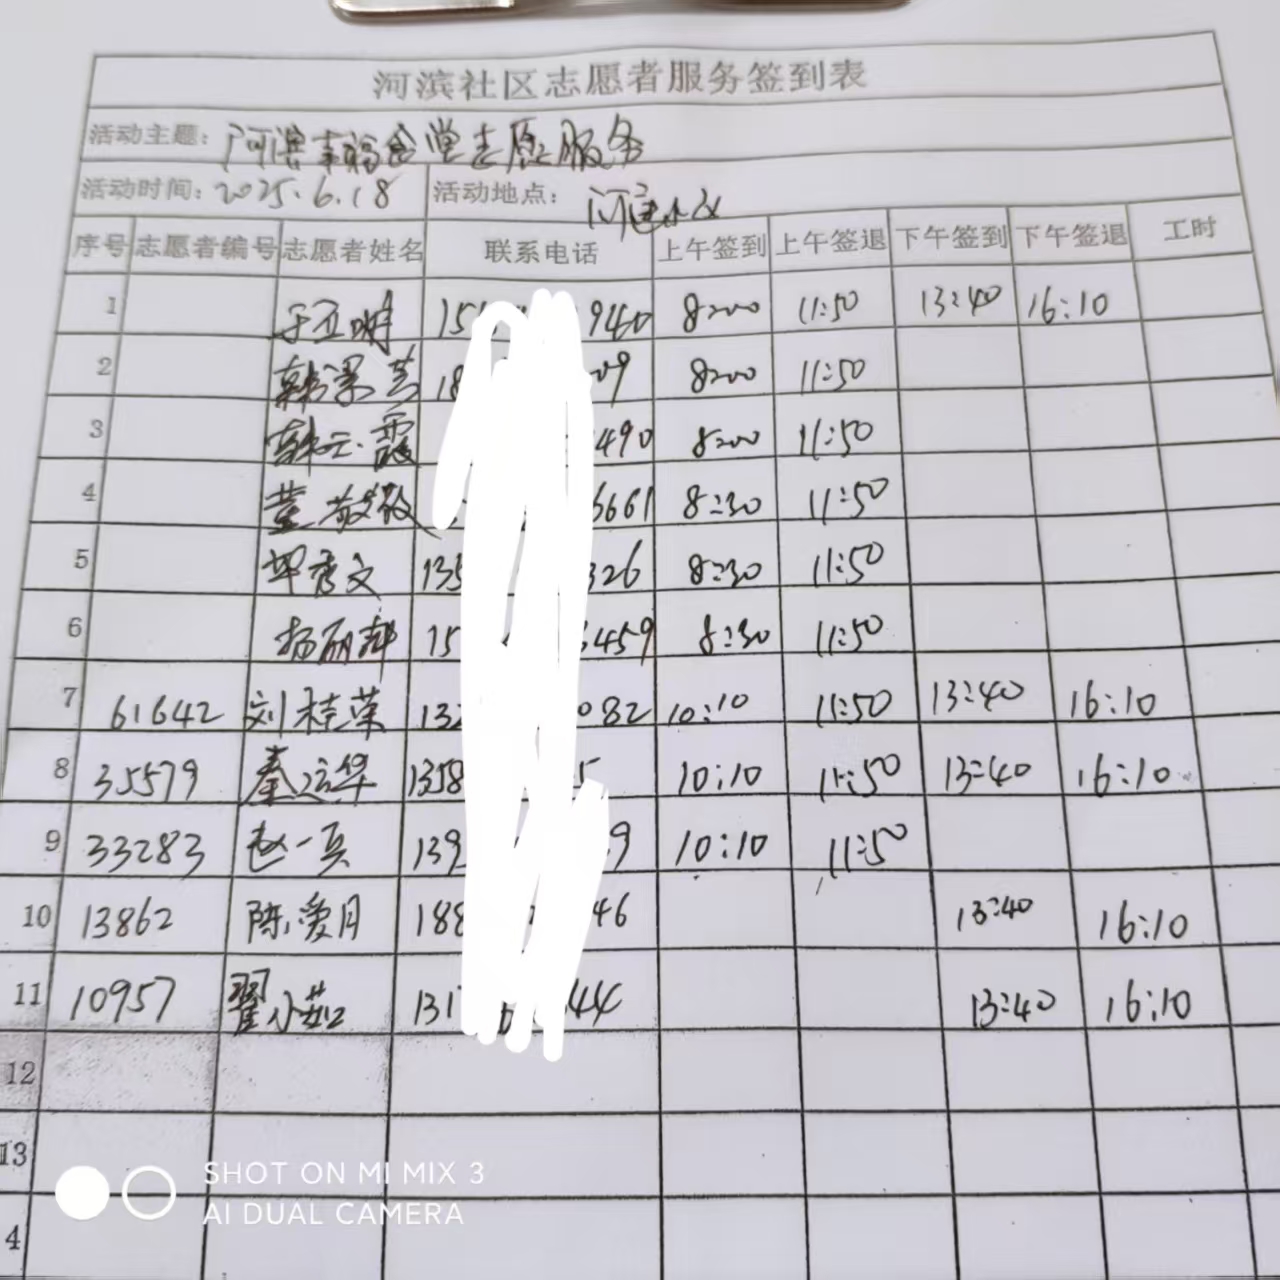 河滨社区志愿者服务签到表
活动主题: 河滨幸福食堂志愿服务
活动时间: 2025.6.18 活动地点: 河滨小区
序号 志愿者编号 志愿者姓名 联系电话 上午签到 上午签退 下午签到 下午签退 工时
1 15 940 8:00 11:50 13:40 16:10
2 18 09 8:00 11:50
3 韩云霞 490 8:00 11:50
4 董敬敏 6661 8:30 11:50
5 毕秀文 135 326 8:30 11:50
6 杨丽萍 15 3459 8:30 11:50
7 61642 刘桂荣 132 082 10:10 11:50 13:40 16:10
8 35579 秦运华 1358 5 10:10 11:50 13:40 16:10
9 33283 赵一兵 139 9 10:10 11:50
10 13862 陈爱月 188 46 13:40 16:10
11 10957 翟小茹 131 44 13:40 16:10
12
13
4
SHOT ON MI MIX 3
AI DUAL CAMERA